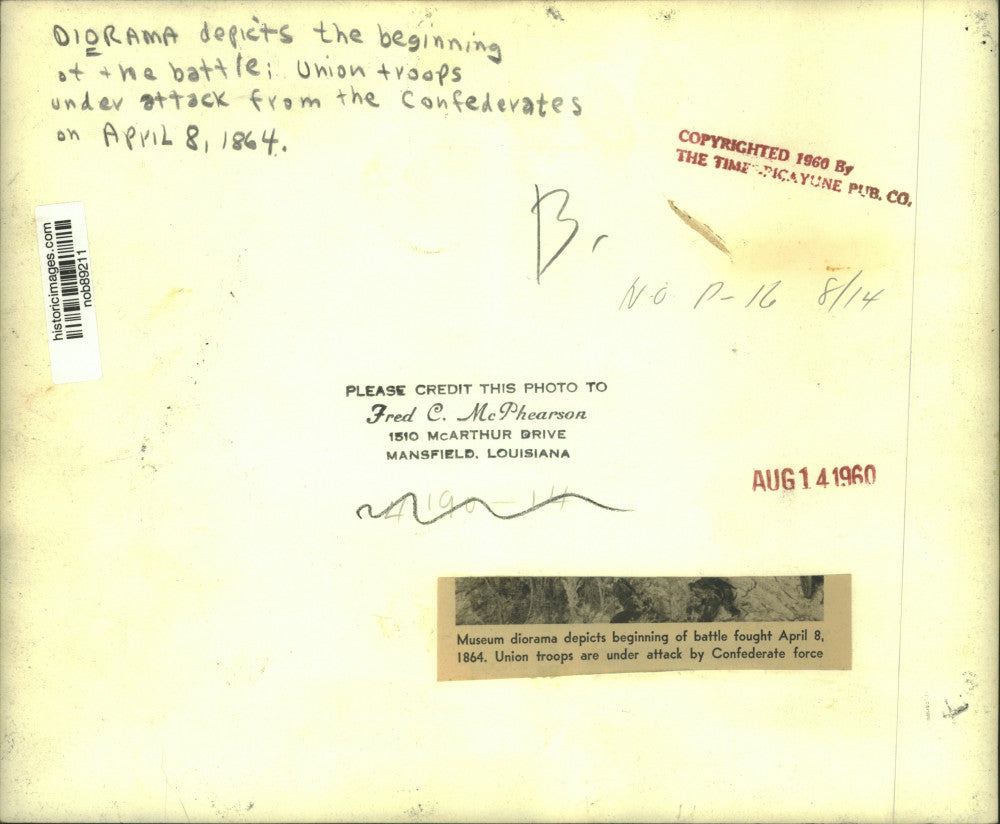 DIORAMA depicts the beginning
of the battle; Union troops
under attack from the Confederates
on APRIL 8, 1864.
COPYRIGHTED 1960 By
THE TIMES-PICAYUNE PUB. CO.
historicimages.com
nob89211
B.
N.O P-16 8/14
PLEASE CREDIT THIS PHOTO TO
Fred C. McPhearson
1510 McARTHUR DRIVE
MANSFIELD, LOUISIANA
AUG 14 1960
Museum diorama depicts beginning of battle fought April 8,
1864. Union troops are under attack by Confederate force